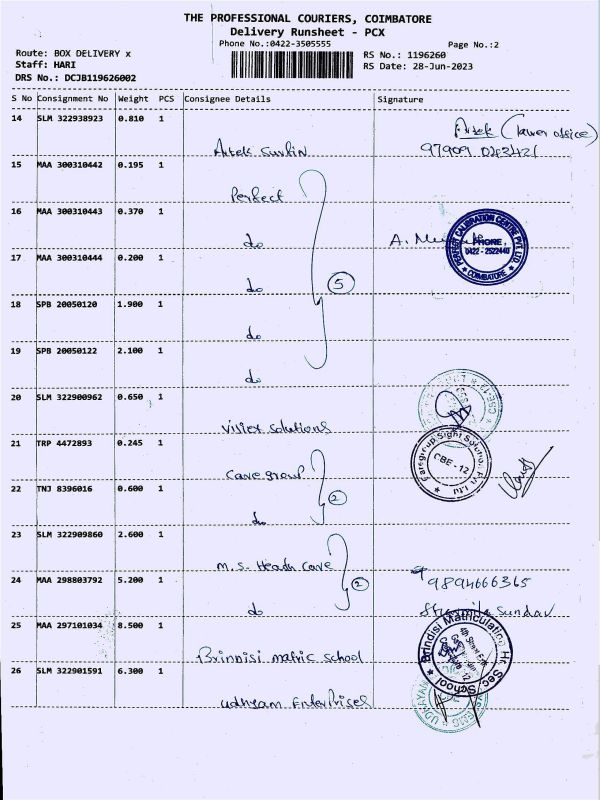 THE PROFESSIONAL COURIERS, COIMBATORE
Delivery Runsheet - PCX
Phone No.:0422-3505555
Page No.:2
Route: BOX DELIVERY x
Staff: HARI
DRS No.: DCJB119626002
RS No.: 1196260
RS Date: 28-Jun-2023
S No Consignment No Weight PCS Consignee Details Signature
14 SLM 322938923 0.810 1
Artek (lower office)
Artek Surfin 97909
15 MAA 300310442 0.195 1
Perfect
16 MAA 300310443 0.370 1
do A.
PERFECT CALIBRATION CENTRE PVT LTD
PHONE,
0422 - 2522440
COIMBATORE
17 MAA 300310444 0.200 1
do 5
18 SPB 20050120 1.900 1
do
19 SPB 20050122 2.100 1
do
20 SLM 322900962 0.650 1
solutions
21 TRP 4472893 0.245 1
Care group
Caregroup Sight Solution Pvt. Ltd
CBE - 12
22 TNJ 8396016 0.600 1
do 2
23 SLM 322909860 2.600 1
M.S. Health Care
24 MAA 298803792 5.200 1
2 9894666365
do Sundar
25 MAA 297101034 8.500 1
Brindisi Matriculation Hr. Sec. School
Brinnisi matric school
26 SLM 322901591 6.300 1
udhyam Enterprises